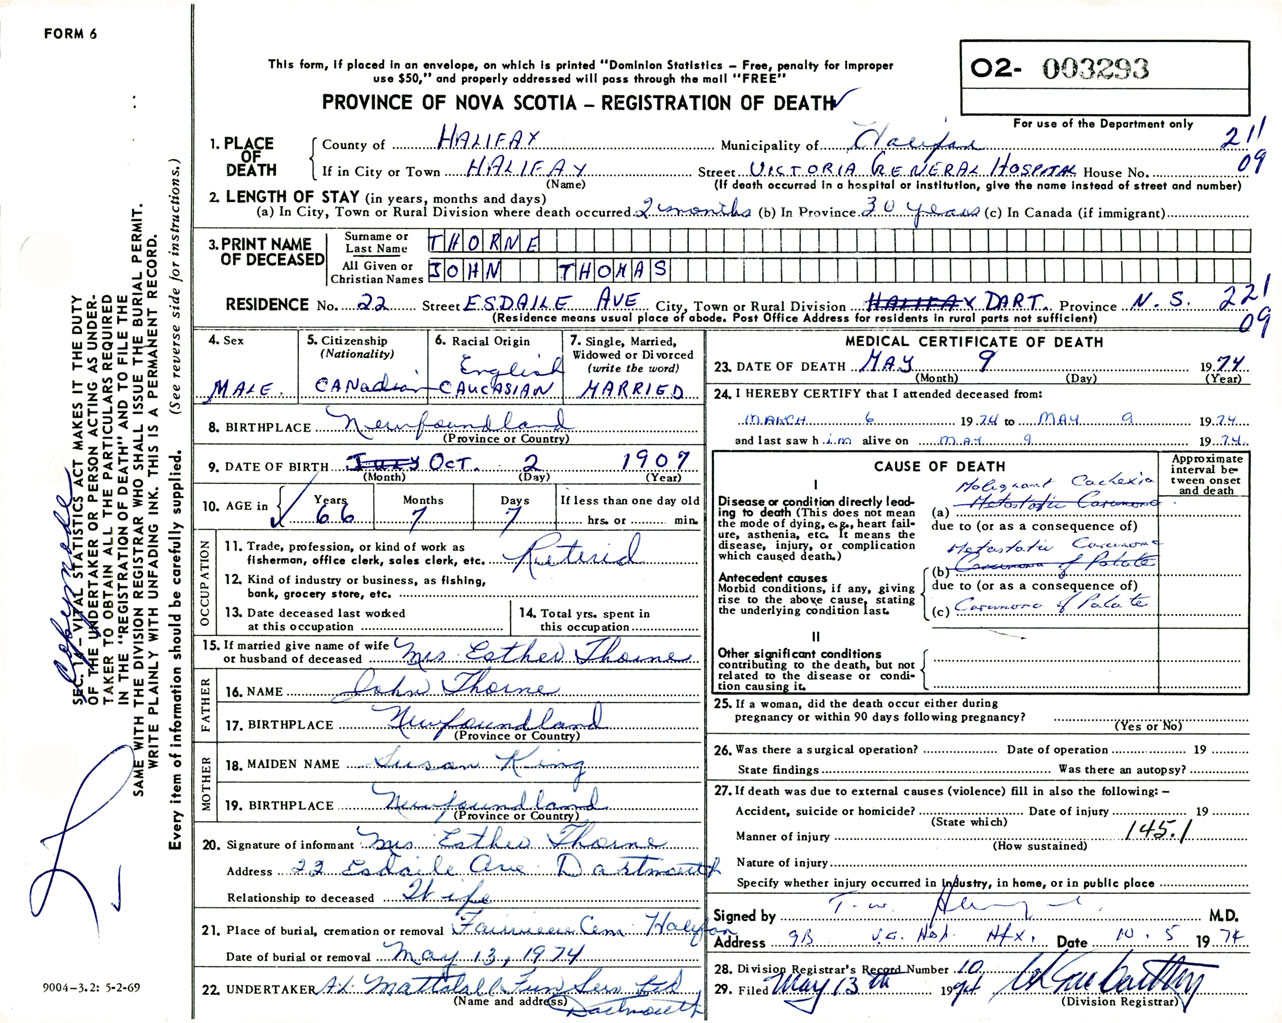 FORM 6
This form, if placed in an envelope, on which is printed "Dominion Statistics – Free, penalty for improper
use $50," and properly addressed will pass through the mail "FREE"
PROVINCE OF NOVA SCOTIA – REGISTRATION OF DEATH
02- 003293
For use of the Department only
1. PLACE OF DEATH
County of HALIFAX Municipality of Halifax 211
If in City or Town HALIFAX Street VICTORIA GENERAL HOSPITAL House No. 09
(Name) (If death occurred in a hospital or institution, give the name instead of street and number)
2. LENGTH OF STAY (in years, months and days)
(a) In City, Town or Rural Division where death occurred 2 months (b) In Province 30 years (c) In Canada (if immigrant)
3. PRINT NAME OF DECEASED
Surname or Last Name THORNE
All Given or Christian Names JOHN THOMAS
RESIDENCE No. 22 Street ESDAILE AVE City, Town or Rural Division HALIFAX DART. Province N.S. 221
(Residence means usual place of abode. Post Office Address for residents in rural parts not sufficient) 09
4. Sex
MALE.
5. Citizenship
(Nationality)
CANadian
6. Racial Origin
English
CAUCASIAN
7. Single, Married,
Widowed or Divorced
(write the word)
MARRIED
8. BIRTHPLACE Newfoundland
(Province or Country)
9. DATE OF BIRTH JULY OCT. 2 1907
(Month) (Day) (Year)
10. AGE in Years Months Days If less than one day old
66 7 7 hrs. or min.
OCCUPATION
11. Trade, profession, or kind of work as
fisherman, office clerk, sales clerk, etc. Retired
12. Kind of industry or business, as fishing,
bank, grocery store, etc.
13. Date deceased last worked
at this occupation
14. Total yrs. spent in
this occupation
15. If married give name of wife
or husband of deceased Mrs Esther Thorne
FATHER
16. NAME John Thorne
17. BIRTHPLACE Newfoundland
(Province or Country)
MOTHER
18. MAIDEN NAME Susan King
19. BIRTHPLACE Newfoundland
(Province or Country)
20. Signature of informant Mrs Esther Thorne
Address 22 Esdaile Ave Dartmouth
Relationship to deceased Wife
21. Place of burial, cremation or removal Fairview Cem Halifax
Date of burial or removal May 13, 1974
22. UNDERTAKER A.L. Mattatall Fun Serv Ltd
(Name and address) Dartmouth
MEDICAL CERTIFICATE OF DEATH
23. DATE OF DEATH MAY 9 1974
(Month) (Day) (Year)
24. I HEREBY CERTIFY that I attended deceased from:
MARCH 6 1974 to MAY 9 1974
and last saw him alive on MAY 9 1974
CAUSE OF DEATH
Approximate
interval be-
tween onset
and death
I
Disease or condition directly lead-
ing to death (This does not mean
the mode of dying, e.g., heart fail-
ure, asthenia, etc. It means the
disease, injury, or complication
which caused death.)
Malignant Cachexia
(a) Metastatic Carcinoma
due to (or as a consequence of)
Metastatic Carcinoma
(b) Carcinoma of Palate
Antecedent causes
Morbid conditions, if any, giving
rise to the above cause, stating
the underlying condition last.
due to (or as a consequence of)
(c) Carcinoma of Palate
II
Other significant conditions
contributing to the death, but not
related to the disease or condi-
tion causing it.
25. If a woman, did the death occur either during
pregnancy or within 90 days following pregnancy?
(Yes or No)
26. Was there a surgical operation? Date of operation 19
State findings Was there an autopsy?
27. If death was due to external causes (violence) fill in also the following: –
Accident, suicide or homicide? Date of injury 19
(State which)
Manner of injury 145.1
(How sustained)
Nature of injury
Specify whether injury occurred in industry, in home, or in public place
Signed by T. W. M.D.
Address 9B V.G. Hosp. Hfx. Date 10. 5 1974
28. Division Registrar's Record Number 10
29. Filed May 13th 1974
(Division Registrar)
SEC. 14 – VITAL STATISTICS ACT MAKES IT THE DUTY
OF THE UNDERTAKER OR PERSON ACTING AS UNDER-
TAKER TO OBTAIN ALL THE PARTICULARS REQUIRED
IN THE "REGISTRATION OF DEATH" AND TO FILE THE
SAME WITH THE DIVISION REGISTRAR WHO SHALL ISSUE THE BURIAL PERMIT.
WRITE PLAINLY WITH UNFADING INK. THIS IS A PERMANENT RECORD.
Every item of information should be carefully supplied. (See reverse side for instructions.)
9004-3.2: 5-2-69